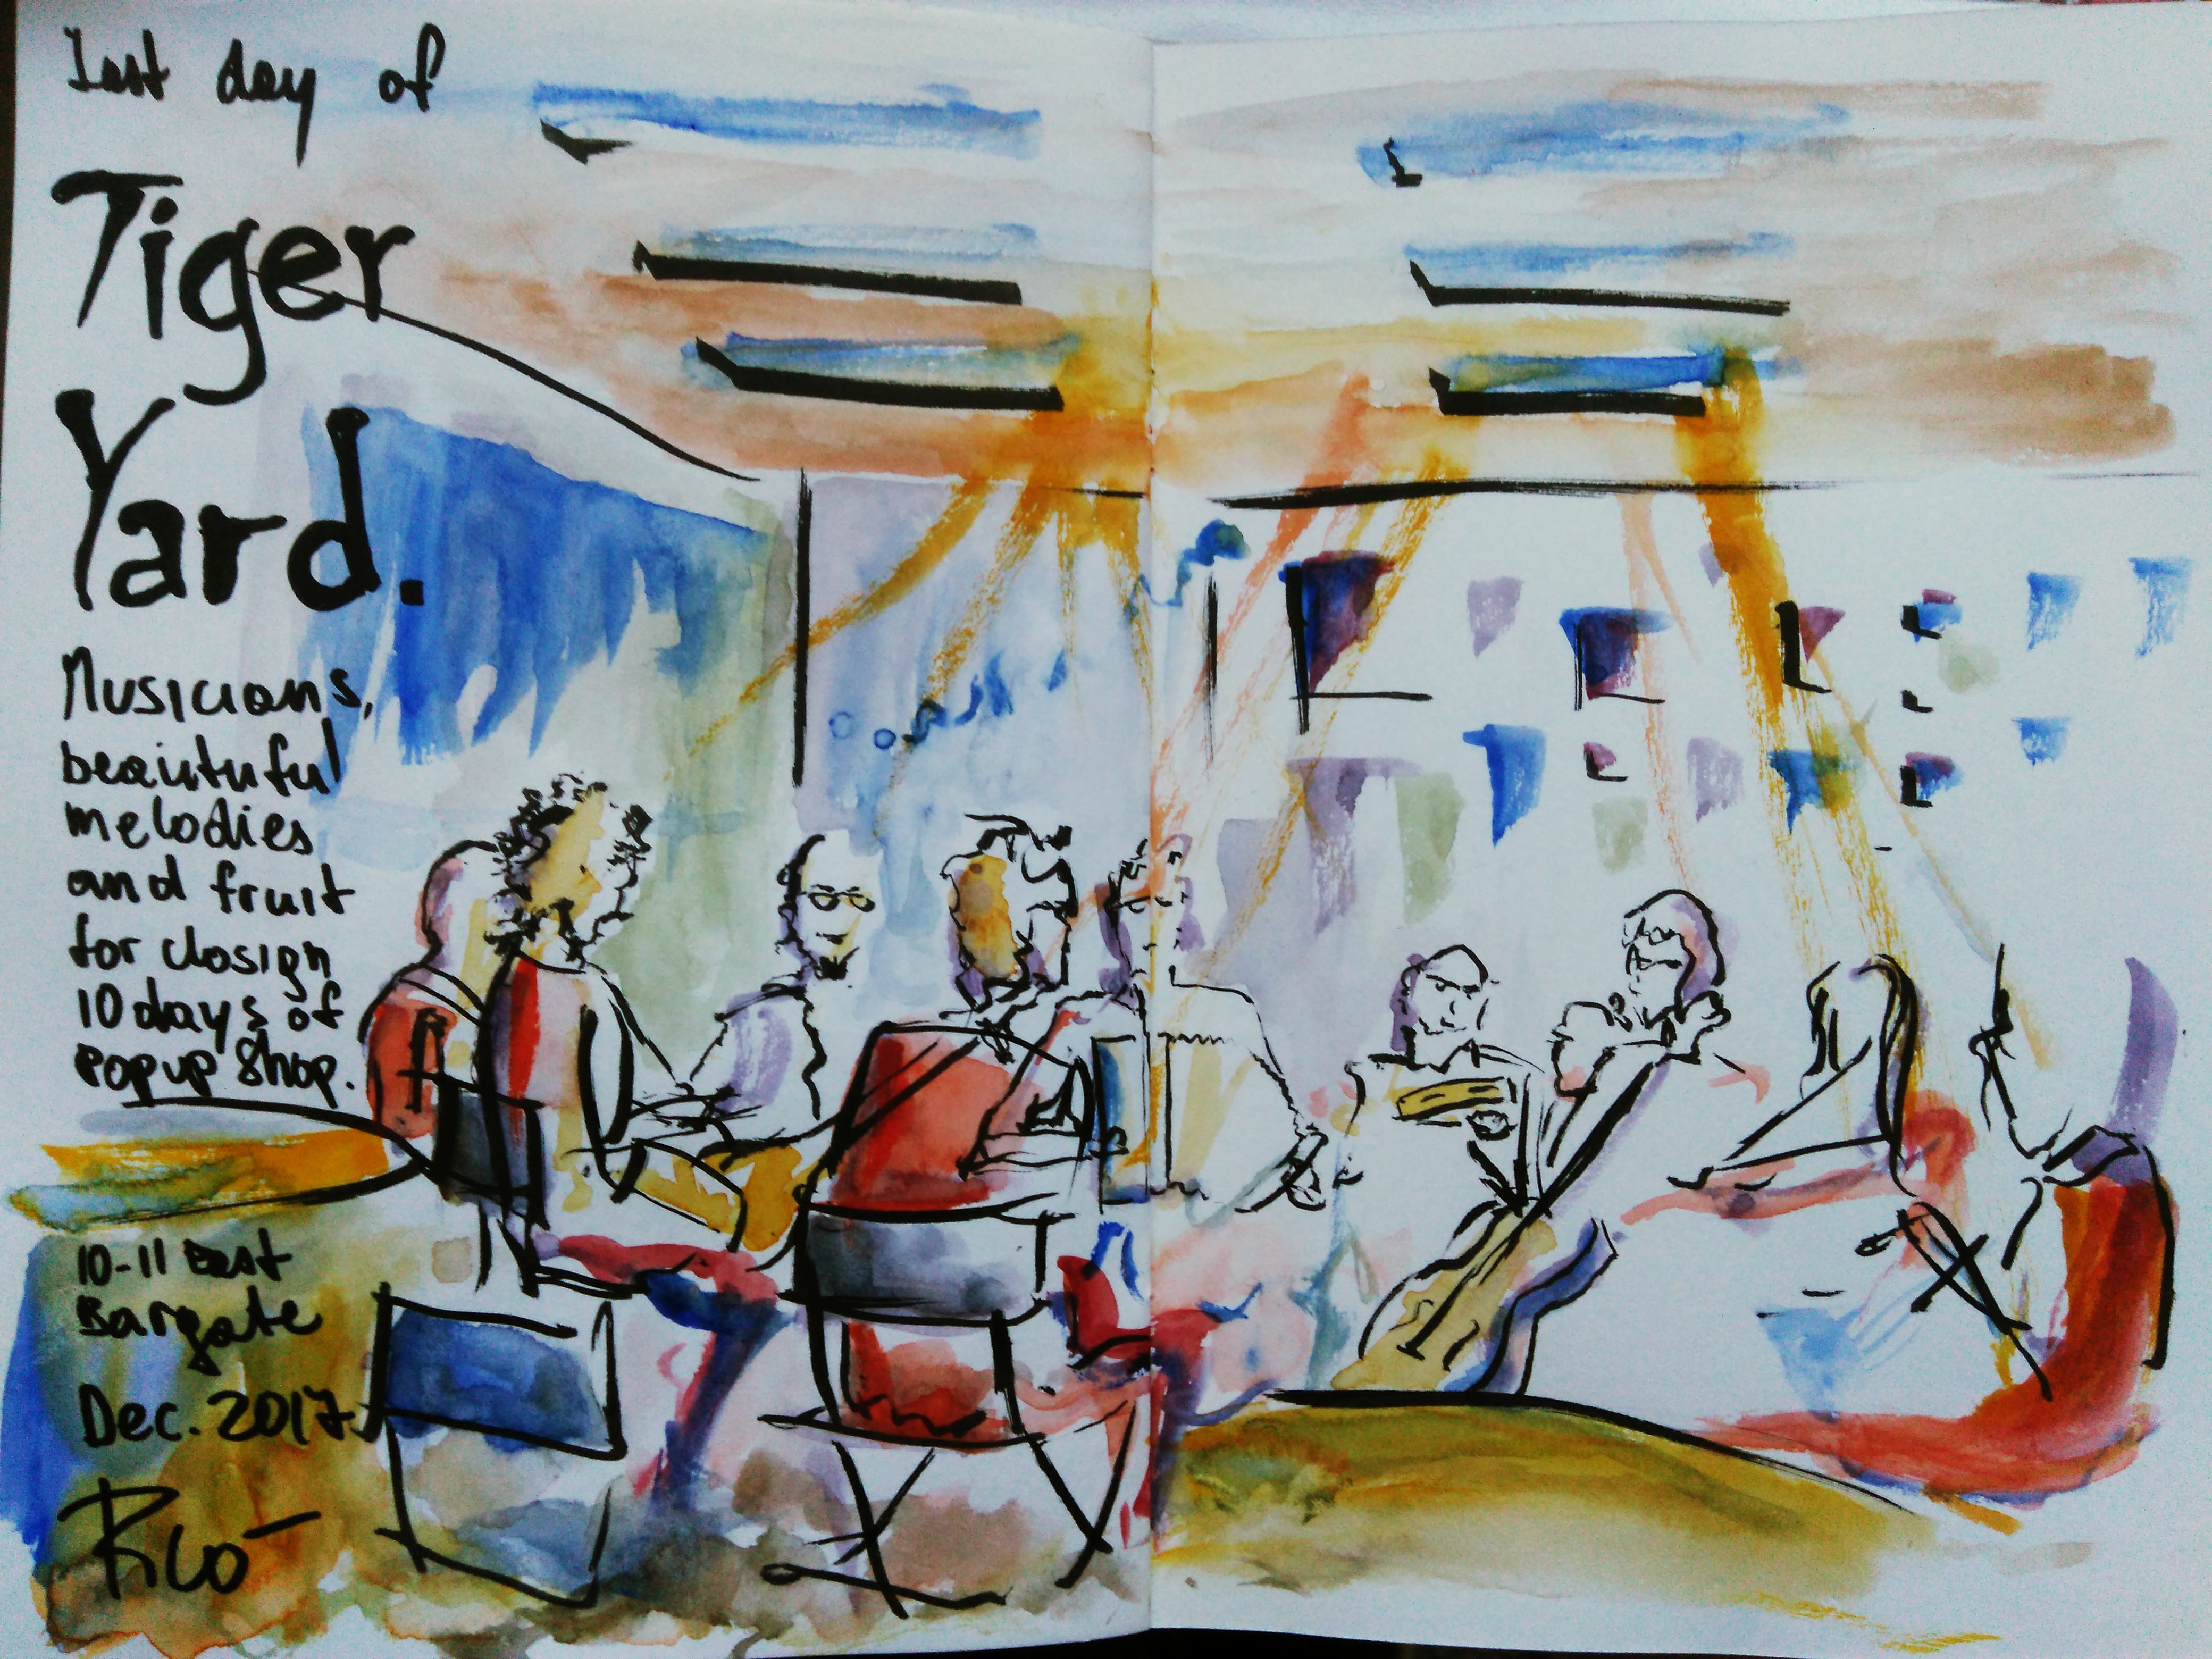 Last day of
Tiger
Yard.
Musicians,
beaiutuful
melodies
and fruit
for closign
10 days of
popup shop.
10-11 East
Bargate
Dec. 2017